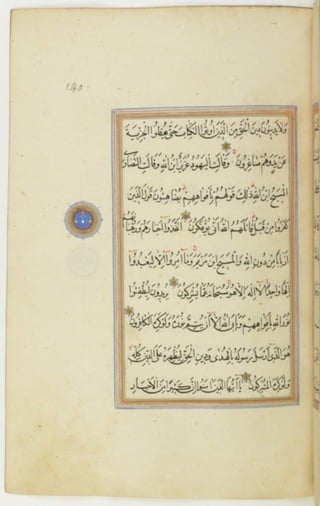 140
ولا يدينون دين الحق من الذين اوتوا الكتاب حتى يعطوا الجزية
عن يد وهم صاغرون وقالت اليهود عزير ابن الله وقالت النصارى
المسيح ابن الله ذلك قولهم بافواههم يضاهئون قول الذين
كفروا من قبل قاتلهم الله انى يؤفكون اتخذوا احبارهم ورهبانهم
اربابا من دون الله والمسيح ابن مريم وما امروا الا ليعبدوا
الها واحدا لا اله الا هو سبحانه عما يشركون يريدون ليطفئوا
نور الله بافواههم ويأبى الله الا ان يتم نوره ولو كره الكافرون
هو الذى ارسل رسوله بالهدى ودين الحق ليظهره على الدين كله
ولو كره المشركون يا ايها الذين امنوا ان كثيرا من الاحبار